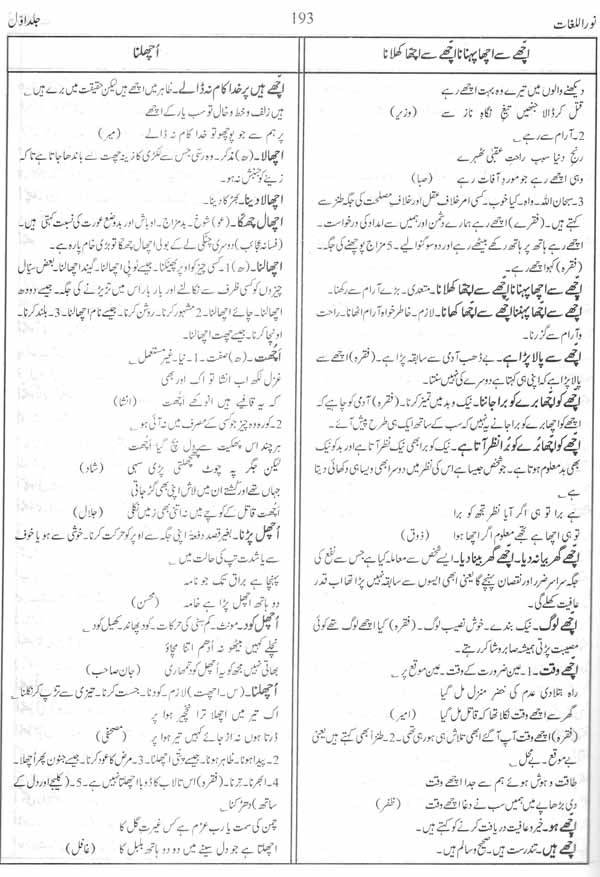 نور اللغات
193
جلد اوّل
اچّھے سے اچھا پہنانا اچّھے سے اچھا کھلانا
دیکھنے والوں میں تیرے وہ بہت اچھے رہے
قتل کر ڈالا جنھیں تیغِ نگاہِ ناز سے (وزیر)
2۔ آرام سے رہے۔
رنج دنیا سبب راحتِ عقبیٰ ٹھہرے
وہی اچھے رہے جو موردِ آفات رہے (صبا)
3۔ سبحان اللہ۔ واہ۔ کیا خوب۔ کسی امر خلاف عقل اور خلاف مصلحت کی جگہ طنز سے
کہتے ہیں۔ (فقرے) اچھے رہے ہمارے دشمن اور ہمیں سے امداد کی درخواست۔
اچھے رہے ہاتھ پر ہاتھ رکھے بیٹھے رہے اور دو سو گنوا لیے۔ 5 مزاج پوچھنے کی جگہ۔
(فقرہ) کہو اچھے رہے۔
اچّھے سے اچھا پہنانا اچّھے سے اچھا کھلانا۔ متعدی۔ بڑے آرام سے رکھنا۔
اچّھے سے اچھا پہننا اچھے سے اچھا کھانا۔ لازم۔ خاطر خواہ آرام اٹھانا۔ راحت
و آرام سے گزرنا۔
اچّھے سے پالا پڑا ہے۔ بے ڈھب آدمی سے سابقہ پڑا ہے۔ (فقرہ) اچھے سے
پالا پڑا ہے کہ اپنی ہی کہتا ہے دوسرے کی نہیں سنتا۔
اچّھے کو اچّھا برے کو برا جاننا۔ نیک و بد میں تمیز کرنا۔ (فقرہ) آدمی کو چاہیے کہ
اچھے کو اچھا برے کو برا جانے یہ نہیں کہ سب کے ساتھ ایک ہی طرح پیش آئے۔
اچّھے کو اچّھا بُرے کو بُرا نظر آتا ہے۔ نیک کو برا بھی نیک نظر آتا ہے اور بد کو نیک
بھی بد معلوم ہوتا ہے۔ جو شخص جیسا ہے اس کی نظر میں دوسرا بھی ویسا ہی دکھائی دیتا
ہے۔
ہے برا تو ہی اگر آیا نظر تجھ کو برا
تو ہی اچھا ہے تجھے معلوم اگر اچھا ہوا (ذوق)
اچّھے گھر بیانہ دیا۔ اچّھے گھر بینا دیا۔ ایسے شخص سے معاملہ کیا ہے جس سے نفع کی
جگہ سراسر ضرر اور نقصان پہنچے گا یعنی ابھی ایسوں سے سابقہ نہیں پڑا تھا اب قدر
عافیت کھلے گی۔
اچّھے لوگ۔ نیک بندے۔ خوش نصیب لوگ۔ (فقرہ) کیا اچھے لوگ تھے کوئی
مصیبت پڑتی ہمیشہ صابر و شاکر رہتے۔
اچّھے وقت۔ 1۔ عین ضرورت کے وقت۔ عین موقع پر۔
راہ بتلا دی عدم کی خضرِ منزل مل گیا
گھر سے اچھے وقت نکلا تھا کہ قاتل مل گیا (امیر)
(فقرہ) اچھے وقت آپ آ گئے ابھی تلاش ہی ہو رہی تھی۔ 2۔ طنزاً بھی کہتے ہیں یعنی
بے موقع۔ بے محل۔
طاقت و ہوش ہوئے ہم سے جدا اچھے وقت
دی بڑھاپے میں ہمیں سب نے دغا اچھے وقت (ظفر)
اچّھے ہو۔ خیر و عافیت دریافت کرنے کو کہتے ہیں۔
اچّھے ہیں۔ تندرست ہیں۔ صحیح و سالم ہیں۔
اُچھلنا
اچّھے ہیں پر خدا کام نہ ڈالے۔ ظاہر میں اچھے ہیں لیکن حقیقت میں برے ہیں۔
ہیں زلف و خط و خال تو سب یار کے اچھے
پر ہم سے جو پوچھو تو خدا کام نہ ڈالے (میر)
اچھالا۔ (ھ) مذکر۔ وہ رسّی جس سے لکڑی کا زینہ چھت سے باندھا جاتا ہے تاکہ
زینے کو جنبش نہ ہو۔
اچھالا دینا۔ بھڑکا دینا۔
اچھال چھکّا۔ (عو) شوخ۔ بد مزاج۔ اوباش اور بد وضع عورت کی نسبت کہتی ہیں۔
(فسانۂ عجائب) دوسری چٹکی لے کے بولی اچھال چھکّا تو بڑی خام پارہ ہے۔
اچھالنا۔ (ھ) 1۔ کسی چیز کو اوپر پھینکنا۔ جیسے ٹوپی اچھالنا۔ گیند اچھالنا۔ بعض سیّال
چیزوں کو کسی ظرف سے نکالنے اور بار بار اس میں تریڑ دینے کی جگہ۔ جیسے دودھ
اچھالنا۔ چائے اچھالنا۔ 2۔ مشہور کرنا۔ روشن کرنا۔ جیسے نام اچھالنا۔ 3۔ بلند کرنا۔
اونچا کرنا۔ جیسے چھت اچھالنا۔
اُچھت۔ (ھ) صفت۔ 1۔ نیا۔ غیر مستعمل۔
غزل لکھ اب انشا تو اک اور بھی
کہ یہ قافیے ہیں انوکھے اچھت (انشا)
2۔ کورا وہ چیز جو کسی کے مصرف میں نہ آئی ہو۔
ہر چند اس پھکیت سے دل بچ گیا اچھت
لیکن جگر پہ چوٹ اچھلتی پڑی سہی (شاد)
جہاں تھے اور کشتے ان میں لاش اپنی بھی گڑ جاتی
اچھت قاتل کے کوچے میں نہ اتنی بھی زمیں نکلی (جلال)
اُچھل پڑنا۔ بغیر قصد دفعۃً اپنی جگہ سے اوپر کو حرکت کرنا۔ خوشی سے ہو یا خوف
سے یا شدت تپ کی حالت میں۔
پہنچا ہے براق تک جو نامہ
دو ہاتھ اچھل پڑا ہے خامہ (محسن)
اُچھل کود۔ مونث۔ کم سنی کی حرکات۔ کود پھاند۔ کھیل کود۔
نچلے کہیں بیٹھو نہ اُدھم اتنا مچاؤ
بھاتی نہیں مجھ کو یہ اُچھل کود تمھاری (جان صاحب)
اُچھلنا۔ (س۔ اچھت) لازم۔ کودنا۔ جست کرنا۔ تیزی سے تڑپ کر نکلنا۔
اک تیر میں اچھلا ترا نخچیر ہوا پر
ڈرتا ہوں نہ اڑ جائے کہیں تیر ہوا پر (مصحفی)
2۔ پیدا ہونا۔ ظاہر ہونا۔ جیسے پتی اچھلنا۔ 3۔ مرض کا عود کرنا۔ جیسے جنون پھر اُچھلا۔
4۔ ابھرنا۔ ترنا۔ (فقرہ) اس تالاب کا ڈوبا اچھلتا نہیں ہے۔ 5۔ (کلیجے اور دل کے
ساتھ) دھڑکنا۔
چمن کی سمت یارب عزم ہے کس غیرتِ گل کا
اچھلتا ہے جو دل سینے میں دو دو ہاتھ بلبل کا (غافل)